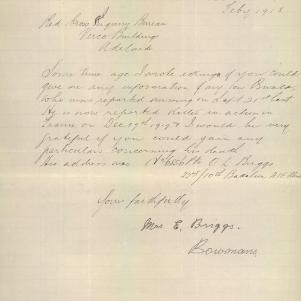 Feby 1918
Red Cross Inquiry Bureau
Verco Buildings
Adelaide
Some time ago I wrote asking if you could
give me any information of my son
who was reported missing on Sept 21st last
He is now reported Killed in action in
on Dec 19th 1917 & I would be very
grateful if you could gain any
particulars concerning his death
His address was No Pte O. L. Briggs
10th Battalion A.I.F.
Yours faithfully
Mrs E. Briggs.
Bowmans